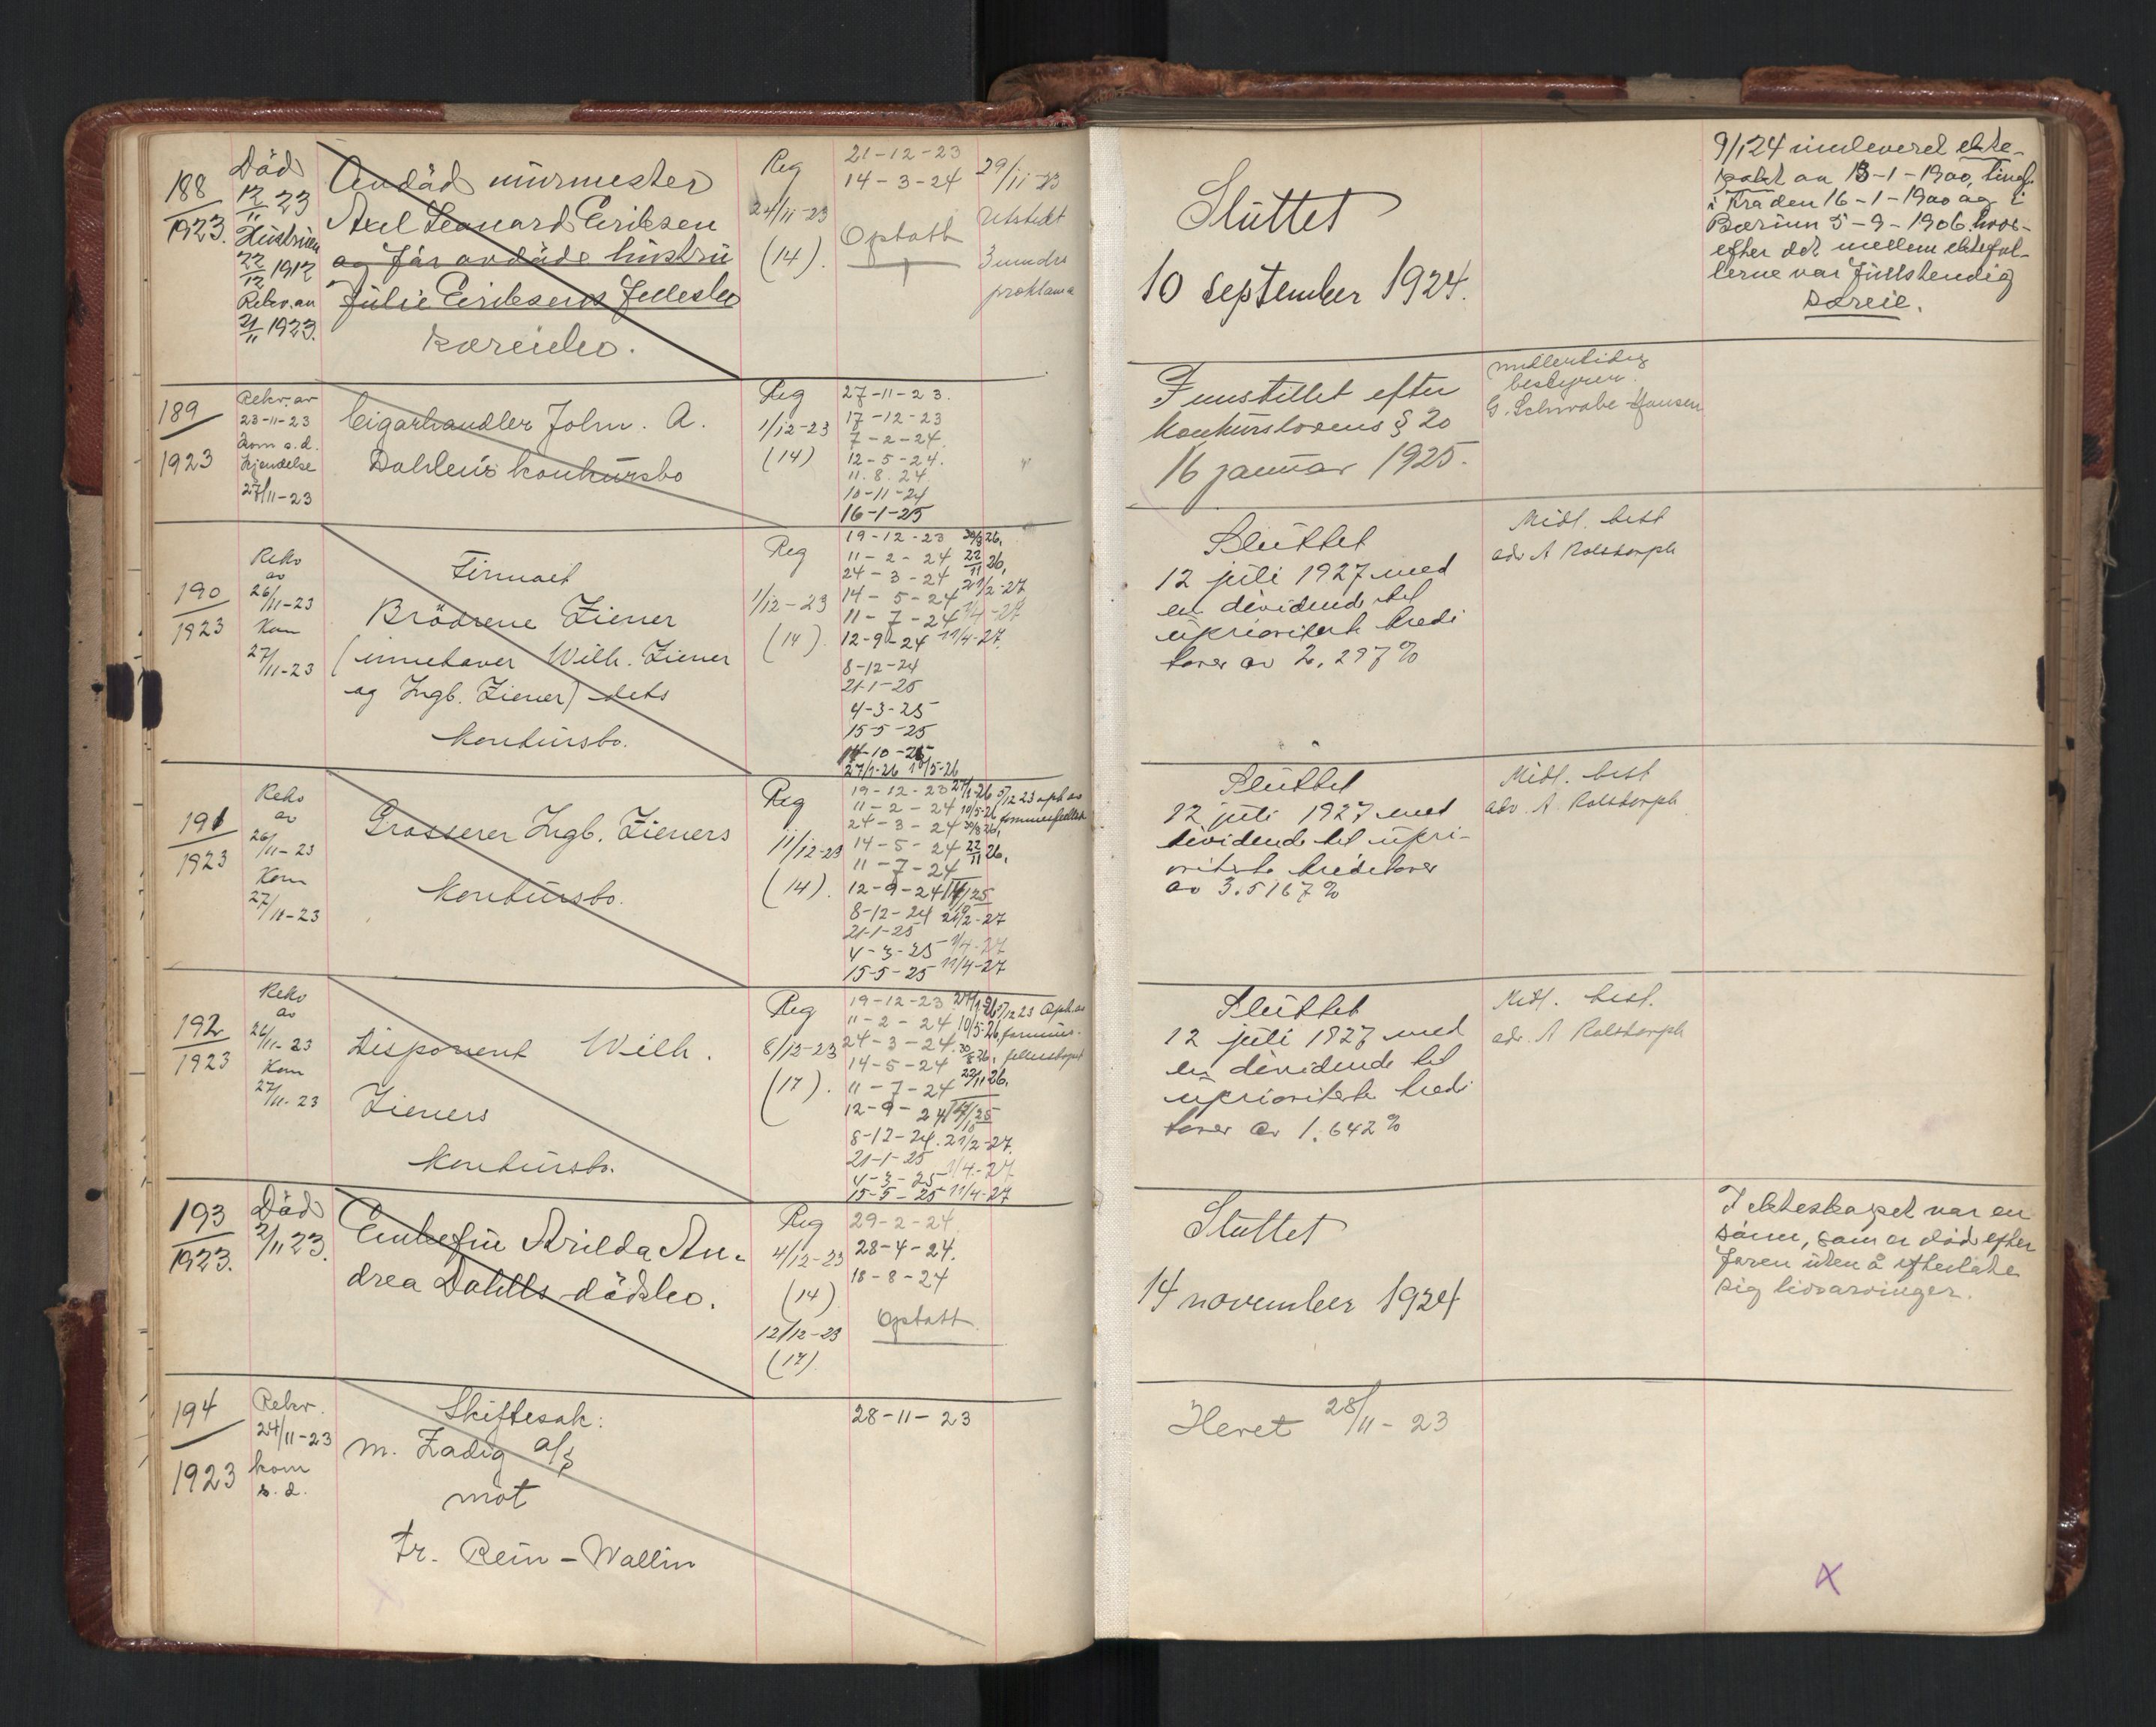 188
1923.
Död
12/11 23
Hüstrüen
22/12 1912
Rekv. av
21/11 1923.
Avdød mürmester
Axel Leonard Eriksen
og før avdøde hüstrü
Jülie Eriksens fellesbo
særeiebo.
Reg
24/11-23
(14).
21-12-23
14-3-24
Optatt
29/11-23
Utstedt
3 mndrs
proklama
Slüttet
10 september 1924.
9/1 24 innleveret ekte-
pakt av 13-1-1900, tingl.
i Kra den 16-1-1900 og i
Bærum 5-9-1906. hvor-
efter det mellem ektefol-
lerne var füllstendig
særeie.
189
1923
Rekv. av
23-11-23
kom s.d.
kjendelse
27/11-23
Cigarhandler John. A.
Dahlens konkürsbo
Reg
1/12-23
(14)
27-11-23.
17-12-23
7-2-24.
12-5-24.
11.8.24.
10-11-24
16-1-25
Innstillet efter
konkürslovens § 20
16 januar 1925.
midlertidig
bestyrer.
G. Schwabe-Hansen
190
1923
Rekv
av
26/11-23
Kom
27/11-23
Firmaet
Brödrene Ziener
(innehaver Wilh. Ziener
og Ingb. Ziener) dets
konkürsbo.
Reg
1/12-23
(14).
19-12-23 30/8 26.
11-2-24 22/11 26,
24-3-24 21/2-27
14-5-24 1/4-27
11-7-24 11/4-27.
12-9-24
8-12-24
21-1-25
4-3-25
15-5-25
14-10-25
27/1-26 10/5-26
Slüttet
12 jüli 1927 med
en dividende til
üprioriterte kredi
torer av 2,297 %
Midl. best
adv A Rolstorph
191
1923
Rekv
av
26/11-23
Kom
27/11-23
Grosserer Ingb. Zieners
konkürsbo.
Reg
11/12-23
(14).
19-12-23 27/1-26 5/12 23 oph av
11-2-24 10/5-26 formuesfelles
24-3-24 30/8 26,
14-5-24 22/11 26,
11-7-24
12-9-24 14/10 25
8-12-24 21/2-27
21-1-25
4-3-25 1/4-27
15-5-25 11/4-27
Slüttet
12 jüli 1927 med
dividende til üpri-
oriterte kreditorer
av 3.5167 %
Midl. best
adv. A. Rolstorph
192
1923
Rekv
av
26/11-23
Kom
27/11-23
Disponent Wilh.
Zieners
konkürsbo.
Reg
8/12-23
(14).
19-12-23 27/1-26 5/12 23 Oph av
11-2-24 10/5-26, formües-
24-3-24. 30/8 26, fellesskapet
14-5-24
11-7-24 22/11 26,
12-9-24 14/10 25
8-12-24. 21/2-27.
21-1-25
4-3-25 1/4-27
15-5-25 11/4-27
Slüttet
12 jüli 1927 med
en dividende til
üprioriterte kredi
torer av 1.642 %
Midl. best.
adv. A Rolstorph
193
1923.
Död
2/11 23.
Enkefrü Arilda An-
drea Dahlls dödsbo.
Reg
4/12-23
(14)
12/12-23
(14)
29-2-24.
28-4-24.
18-8-24
Optatt.
Slüttet
14 november 1924
I ekteskapet var en
sönn, som er död efter
faren uten å efterlate
sig livsarvinger.
194
1923
Rekv.
24/11-23
kom
s.d.
Skiftesak:
M. Zadig a/s
mot
Fr. Rein-Wallin
28-11-23
Hevet 28/11-23
X